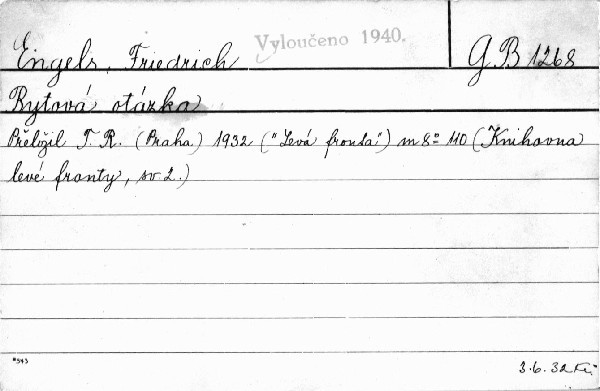 Engels, Friedrich
Vyloučeno 1940.
GB 1268
Bytová otázka
Přeložil T. R. (Praha) 1932 ("Levá fronta") m 8° 110 (Knihovna
levé fronty, sv. 2.)
*543
3.6.32